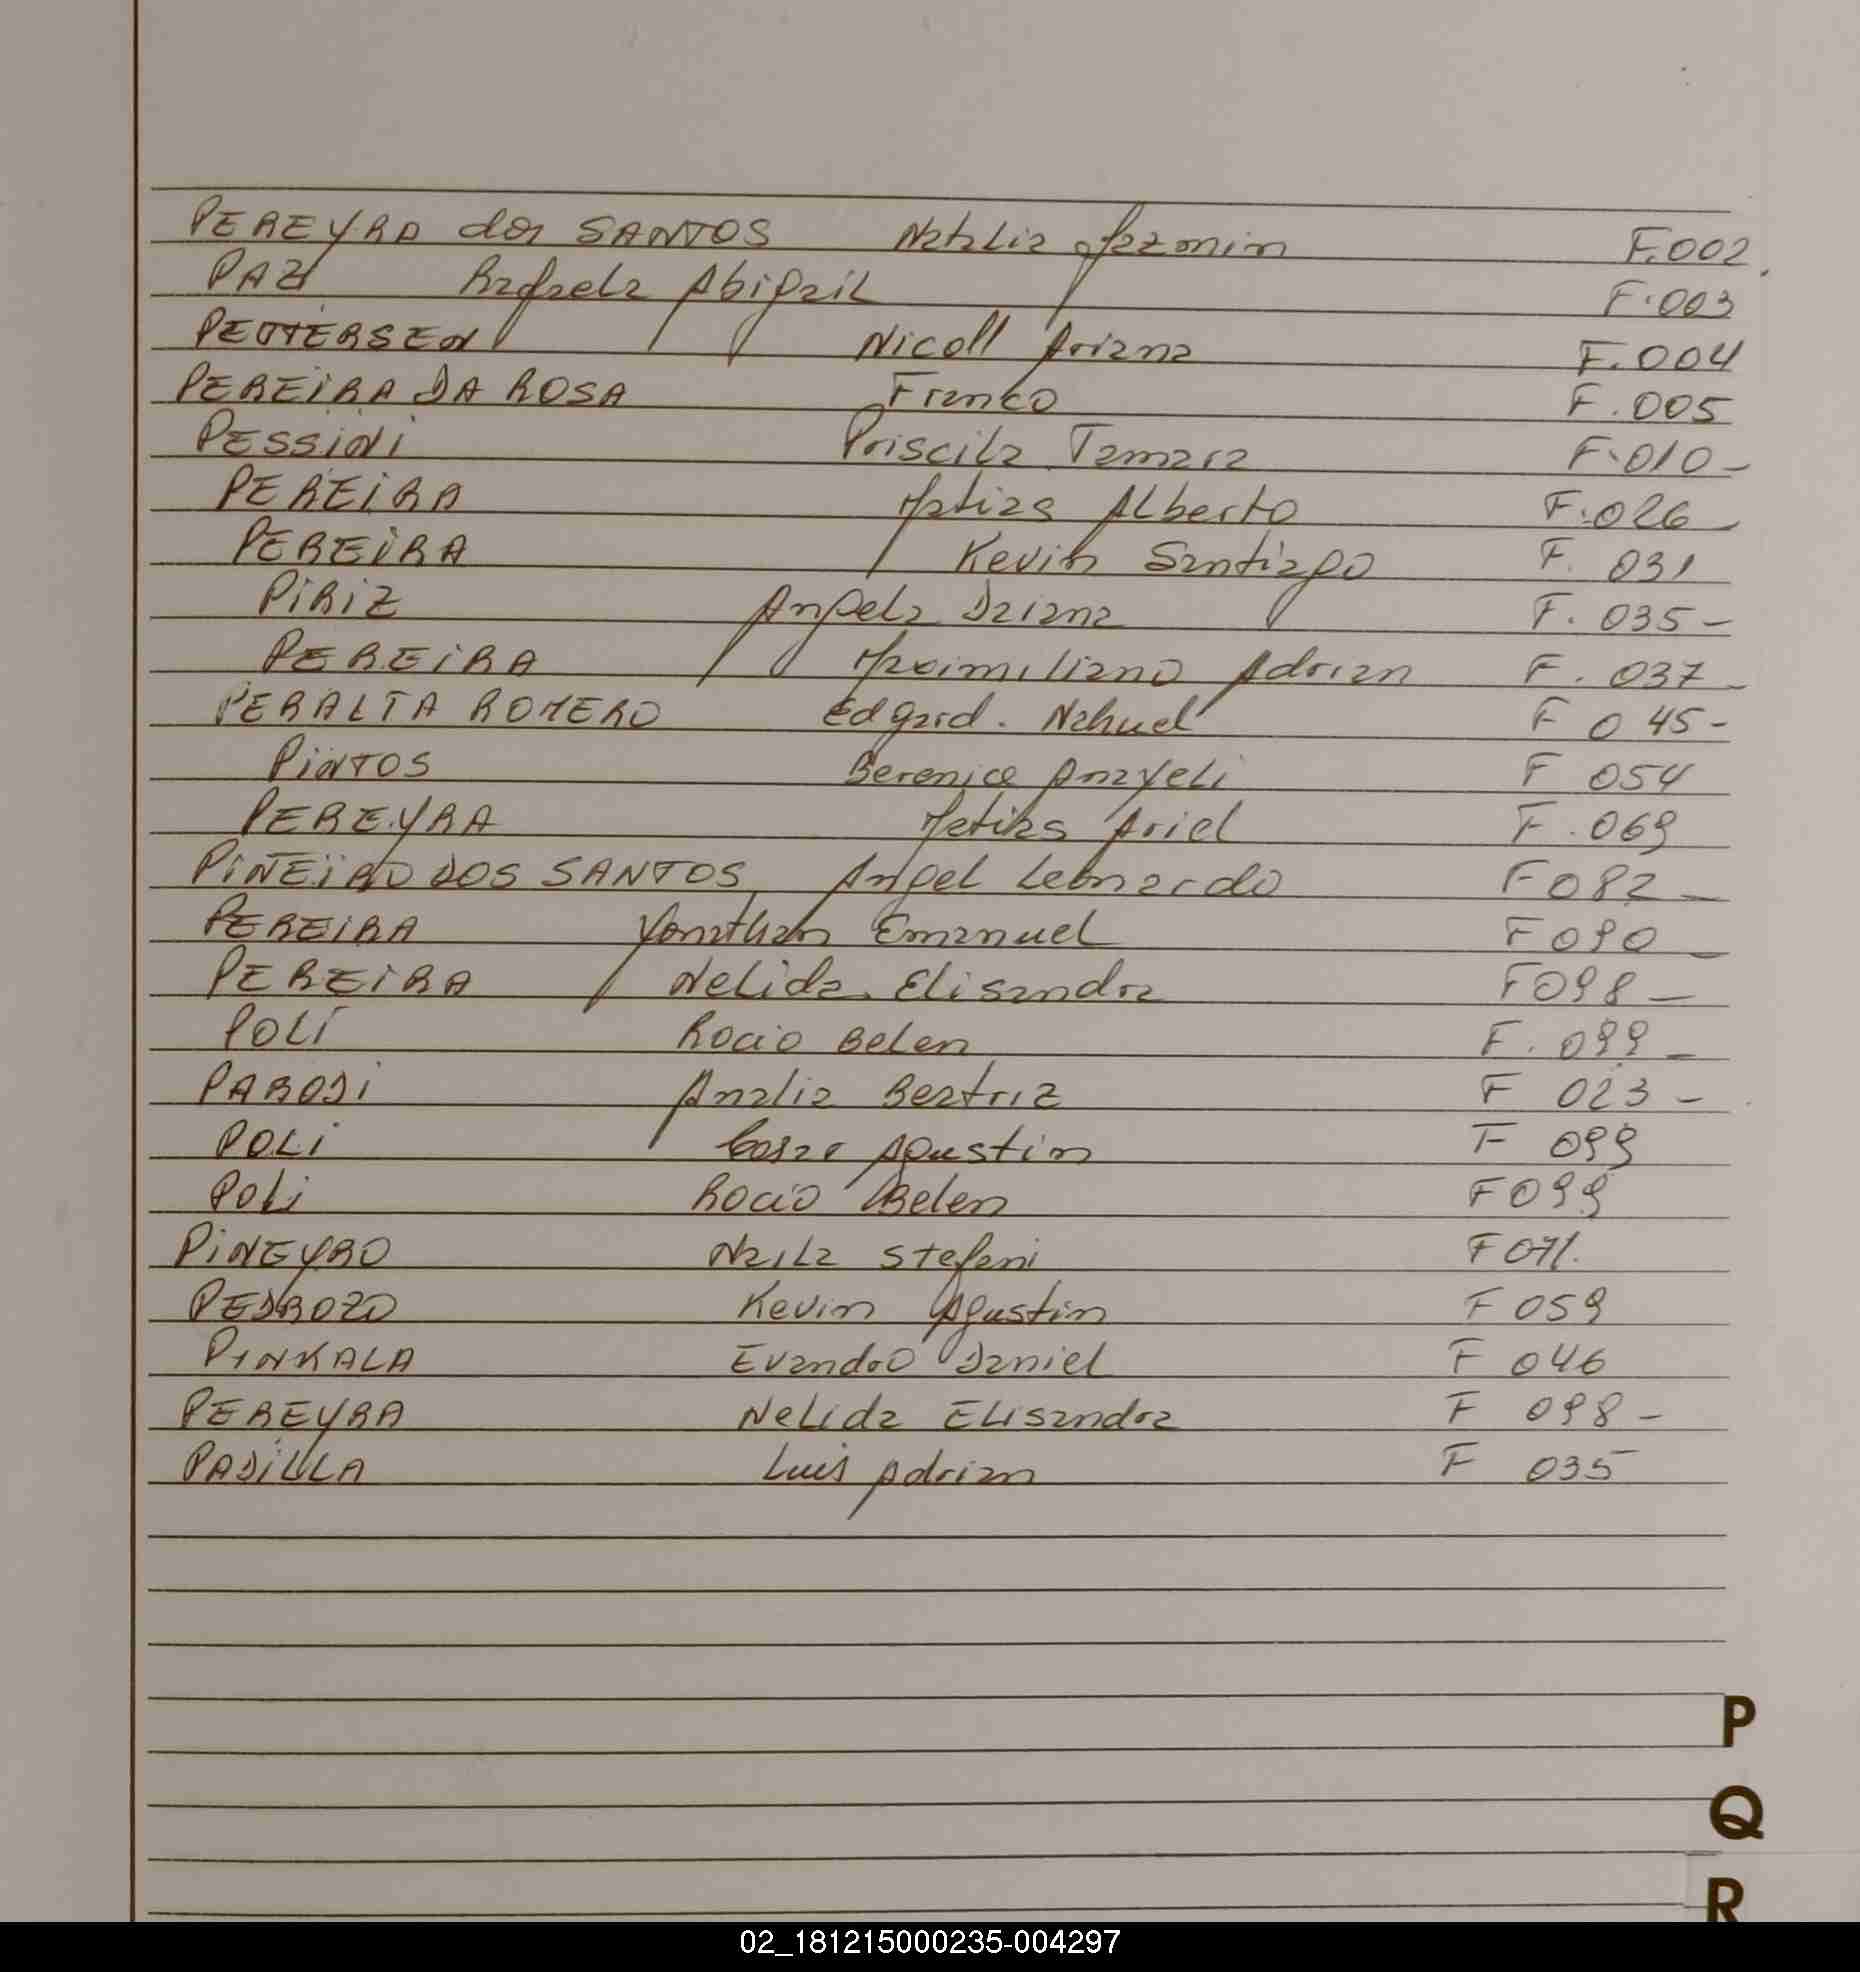 PEREYRA dos SANTOS Natalia Jazmin F.002.
PAZ Rafaela Abigail F.003
PETTERSEN Nicoll Ariana F.004
PEREIRA DA ROSA Franco F.005
PESSINI Priscila Tamara F.010-
PEREIRA Matias Alberto F.026-
PEREIRA Kevin Santiago F. 031
PIRIZ Angela Daiana F. 035-
PEREIRA Maximiliano Adrian F. 037-
PERALTA ROMERO Edgard. Nahuel F 045-
PINTOS Berenice Anayeli F 054
PEREYRA Matias Ariel F. 069
PIÑEIRO DOS SANTOS Angel Leonardo F 082-
PEREIRA Yonathan Emanuel F 090-
PEREIRA Nelida Elisandra F 098-
POLI Rocio Belen F. 099-
PARODI Analia Beatriz F 023-
POLI Agustin F 099
POLI Rocio Belen F 099
PINEYRO Naila Stefani F 071.
PEDROZO Kevin Agustin F 059
PINKALA Evandro Daniel F 046
PEREYRA Nelida Elisandra F 098-
PADILLA Luis Adrian F 035
P
Q
R
02_181215000235-004297